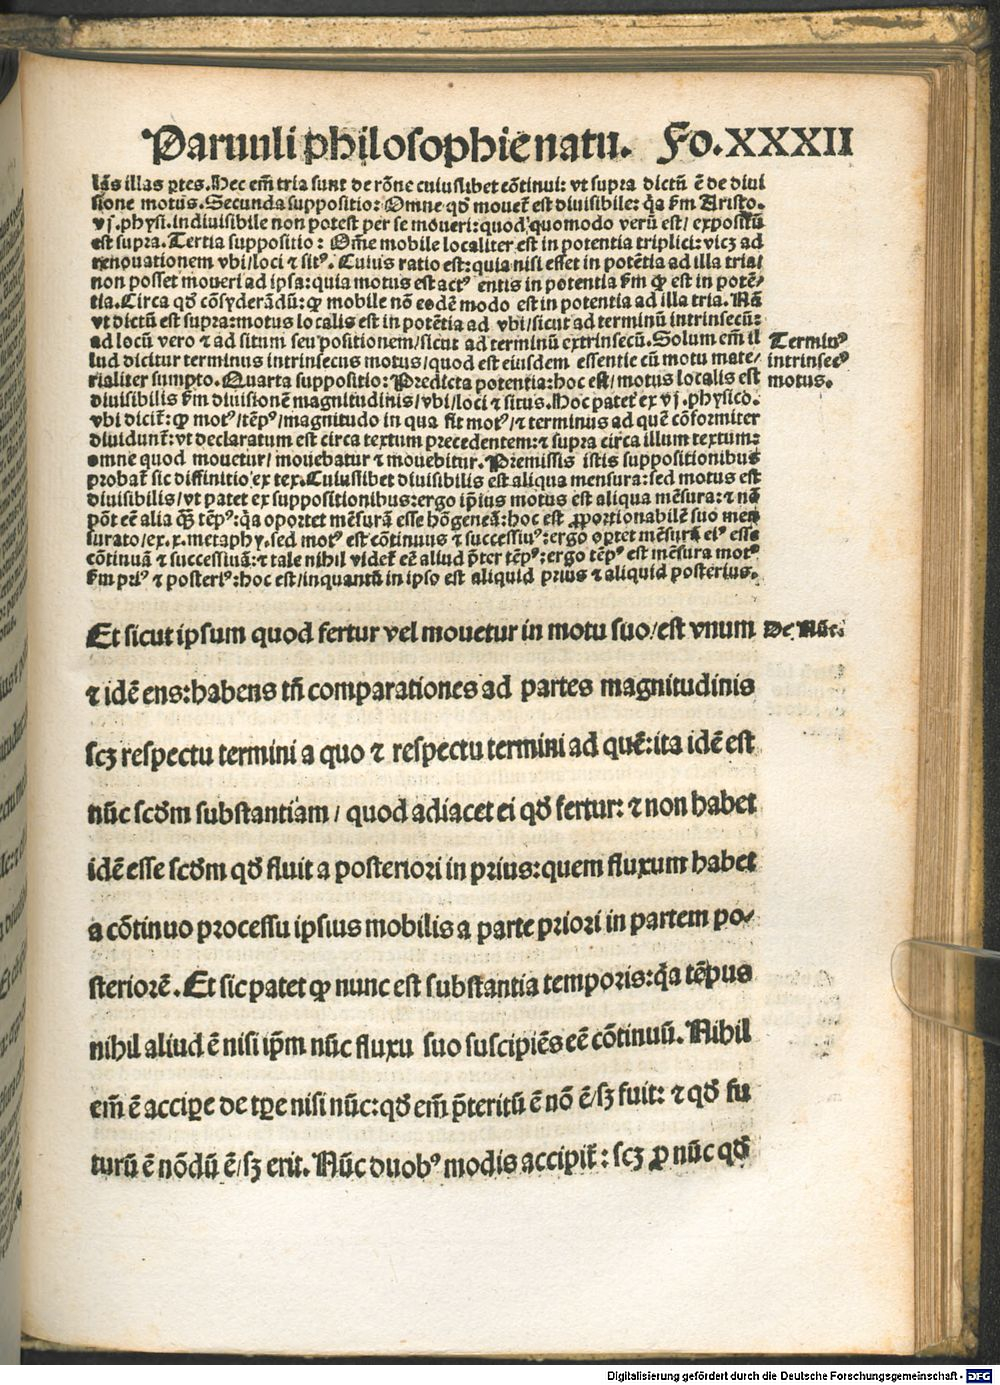 Paruuli philosophie natu. Fo.XXXII
lās illas ꝑtes. Hec em̄ tria sunt de rōne cuiuslibet cōtinui: vt supra dictū ē de diui
sione motus. Secunda suppositio: Omne qđ mouet̄ est diuisibile: q̄a ẜm Aristo.
vj. physi. indiuisibile non potest per se moueri: quod quomodo verū est/ expositū
est supra. Tertia suppositio: Om̄e mobile localiter est in potentia triplici: vicꝫ ad
renouationem vbi/loci ⁊ sitꝰ. Cuius ratio est: quia nisi esset in potētia ad illa tria/
non posset moueri ad ipsa: quia motus est actꝰ entis in potentia ẜm ꝙ est in potē-
tia. Circa qđ cōsyderādū: ꝙ mobile nō eodē modo est in potentia ad illa tria. Nā
vt dictū est supra: motus localis est in potētia ad vbi/sicut ad terminū intrinsecū:
ad locū vero ⁊ ad situm seu positionem/sicut ad terminū extrinsecū. Solum em̄ il
lud dicitur terminus intrinsecus motus/quod est eiusdem essentie cū motu mate/
rialiter sumpto. Quarta suppositio: Predicta potentia: hoc est/ motus localis est
diuisibilis ẜm diuisionē magnitudinis/vbi/loci ⁊ situs. Hoc patet ex vj. physico.
vbi dicit̄: ꝙ motꝰ/tēpꝰ/magnitudo in qua fit motꝰ/⁊ terminus ad quē cōformiter
diuidunt̄: vt declaratum est circa textum precedentem: ⁊ supra circa illum textum:
omne quod mouetur/ mouebatur ⁊ mouebitur. Premissis istis suppositionibus
probat̄ sic diffinitio ex tex. Cuiuslibet diuisibilis est aliqua mensura: sed motus est
diuisibilis/vt patet ex suppositionibus: ergo ip̄ius motus est aliqua mēsura: ⁊ nō
pōt eē alia q̄ꝫ tēpꝰ: q̄a oportet mēsurā esse hōgeneā: hoc est ꝓportionabilē suo men
surato/ex.x. metaphy. sed motꝰ est cōtinuus ⁊ successiuꝰ: ergo oꝑtet mēsurā eiꝰ esse
cōtinuā ⁊ successiuā: ⁊ tale nihil videt̄ eē aliud p̄ter tēpꝰ: ergo tēpꝰ est mēsura motꝰ
ẜm priꝰ ⁊ posteriꝰ: hoc est/inquantū in ipso est aliquid prius ⁊ aliquid posterius.
Terminꝰ
intrinsecꝰ
motus.
Et sicut ipsum quod fertur vel mouetur in motu suo/est vnum
De Nūc.
⁊ idē ens: habens tn̄ comparationes ad partes magnitudinis
scꝫ respectu termini a quo ⁊ respectu termini ad quē: ita idē est
nūc scđm substantiam/ quod adiacet ei qđ fertur: ⁊ non habet
idē esse scđm qđ fluit a posteriori in prius: quem fluxum habet
a cōtinuo processu ipsius mobilis a parte priori in partem po/
steriorē. Et sic patet ꝙ nunc est substantia temporis: q̄a tēpus
nihil aliud ē nisi ip̄m nūc fluxu suo suscipiēs eē cōtinuū. Nihil
em̄ ē accipe de tꝑe nisi nūc: qđ em̄ p̄teritū ē nō ē/sꝫ fuit: ⁊ qđ fu
turū ē nōdū ē/sꝫ erit. Nūc duobꝰ modis accipit̄: scꝫ ꝓ nūc qđ
Digitalisierung gefördert durch die Deutsche Forschungsgemeinschaft - DFG